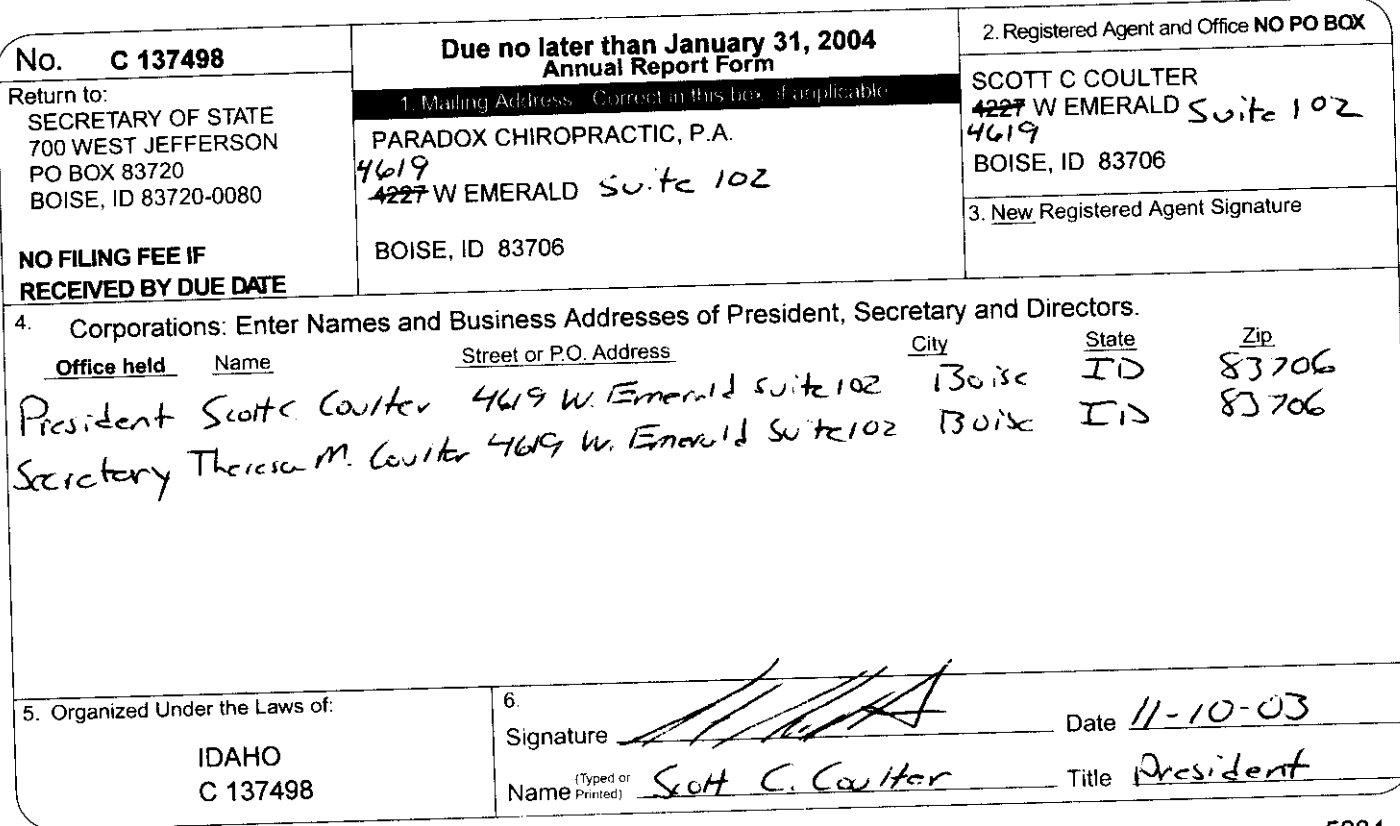 No. C 137498
Return to:
SECRETARY OF STATE
700 WEST JEFFERSON
PO BOX 83720
BOISE, ID 83720-0080
NO FILING FEE IF
RECEIVED BY DUE DATE
Due no later than January 31, 2004
Annual Report Form
1. Mailing Address Correct in this box, if applicable
PARADOX CHIROPRACTIC, P.A.
4619
4227 W EMERALD Suite 102
BOISE, ID 83706
2. Registered Agent and Office NO PO BOX
SCOTT C COULTER
4227 W EMERALD Suite 102
4619
BOISE, ID 83706
3. New Registered Agent Signature
4. Corporations: Enter Names and Business Addresses of President, Secretary and Directors.
Office held Name Street or P.O. Address City State Zip
President Scott C. Coulter 4619 W. Emerald Suite 102 Boise ID 83706
Secretary Theresa M. Coulter 4619 W. Emerald Suite 102 Boise ID 83706
5. Organized Under the Laws of:
IDAHO
C 137498
6.
Signature Date 11-10-03
Name (Typed or Printed) Scott C. Coulter Title President